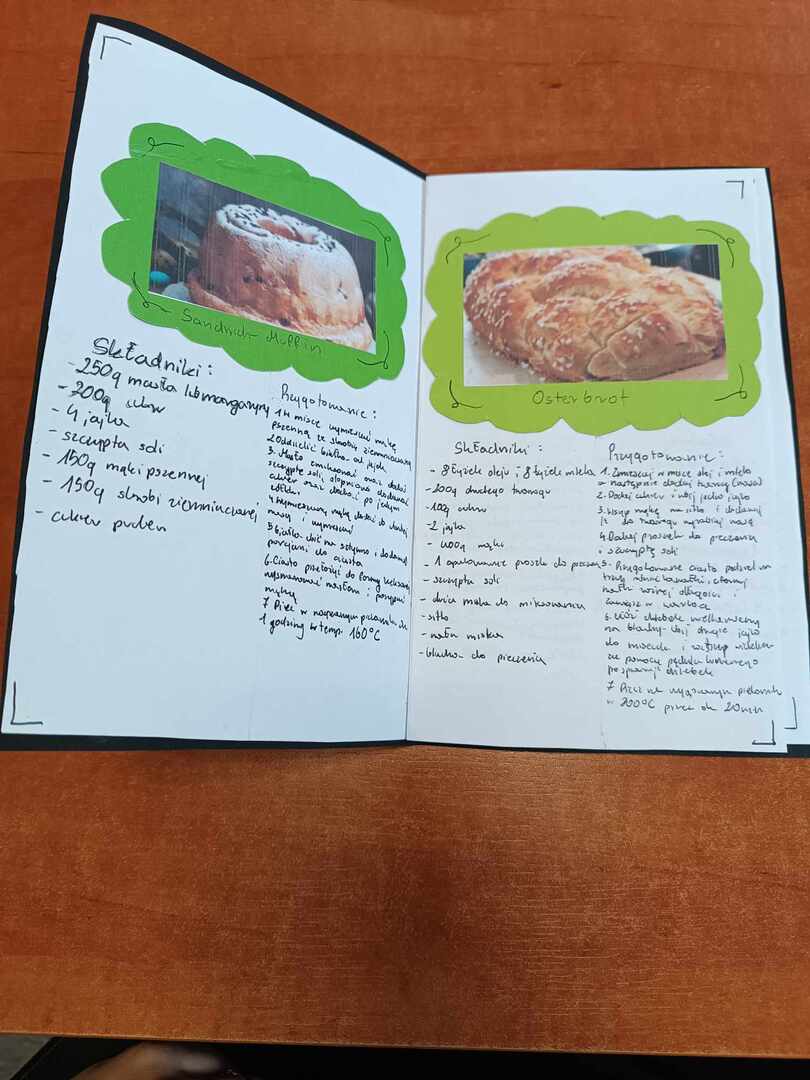 Sandwich-Muffin
Składniki:
- 250g masła lub margaryny
- 200g cukru
- 4 jajka
- szczypta soli
- 150g mąki pszennej
- 150g skrobi ziemniaczanej
- cukier puder
Przygotowanie:
1 W misce wymieszać mąkę
pszenną ze skrobią ziemniaczaną
2 Oddzielić białka od jajek
3. Masło zmiksować oraz dodać
szczyptę soli, stopniowo dodawać
cukier oraz dodać po jednym
żółtku.
4. Wymieszaną mąkę dodać do
masy i wymieszać
5 Białka ubić na sztywno i dodawać
porcjami do ciasta
6. Ciasto przełożyć do formy
wysmarować masłem i posypać
mąką
7 Piec w nagrzanym piekarniku ok
1 godziny w temp. 160°C
Osterbrot
Składniki:
- 8 łyżek oleju i 8 łyżek mleka
- 200g chudego twarogu
- 10g cukru
- 2 jajka
- 400g mąki
- 1 opakowanie proszku do pieczenia
- szczypta soli
- dwie miski do miksowania
- sitko
- mała miska
- blacha do pieczenia
Przygotowanie:
1. Zmieszaj w misce olej i mleko
a następnie dodaj twaróg
2. Dodaj cukier i wbij jedno jajko
3. Wsyp mąkę na sitko i dodawaj
ją do twarogu wyrabiaj masę
4. Dodaj proszek do pieczenia
i szczyptę soli
5. Przygotowane ciasto podziel na
trzy równe kawałki, uformuj
wałki równej długości i
zawiąż w warkocz
6. Ułóż chlebek wielkanocny
na blachę. Wbij drugie jajo
do miseczki i
za pomocą pędzla kuchennego
posmaruj chlebek
7 Piec w nagrzanym piekarniku
w 200°C przez ok 20 min